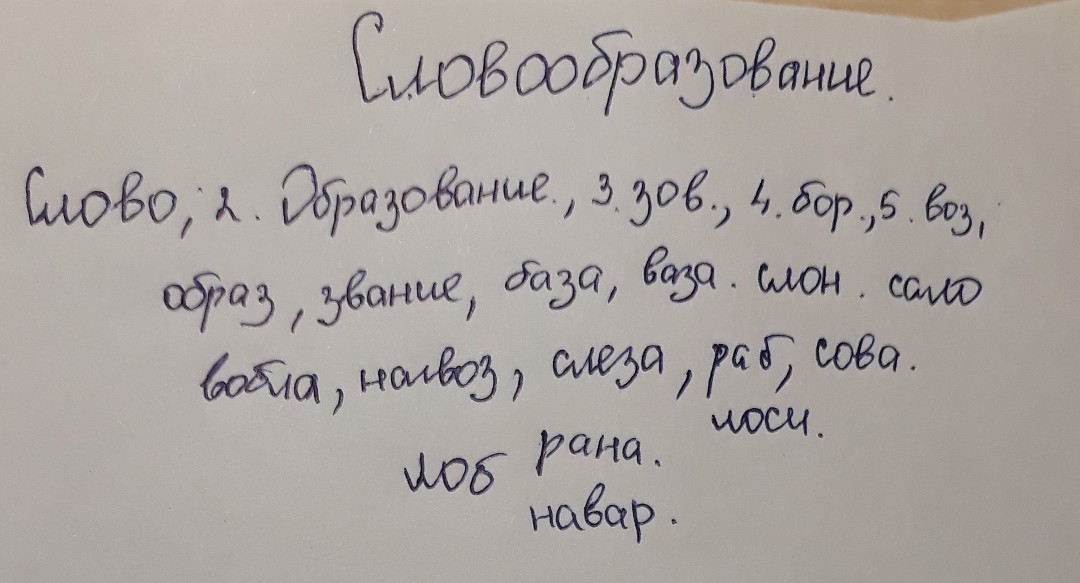 Словообразование.
Слово, 2. Образование., 3. зов., 4. бор., 5. воз,
образ, звание, база, ваза. слон. сало
вобла, навоз, слеза, раб, сова.
лоси.
лоб рана.
навар.